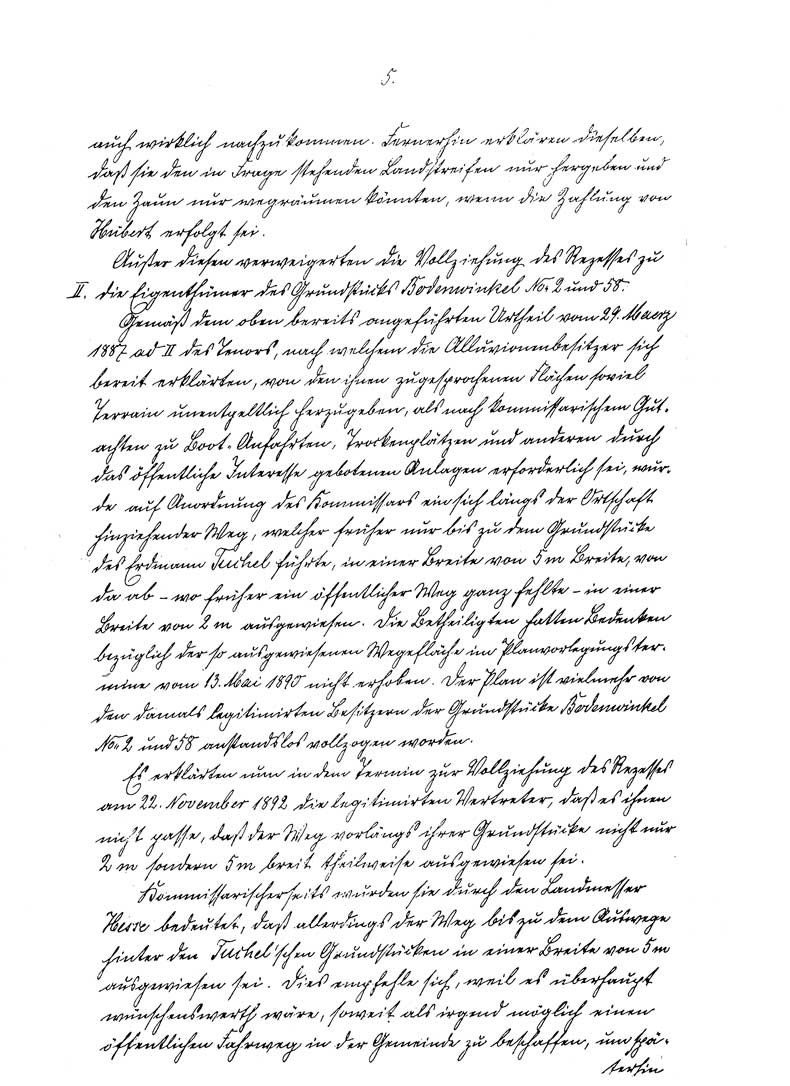 5.
auch wirklich nachzukommen. Fernerhin erklären dieselben,
daß sie den in Frage stehenden Landstreifen nur hergeben und
den Zaun nur wegräumen könnten, wenn die Zahlung von
Hübert erfolgt sei.
Außer diesen verweigerten die Vollziehung des Rezesses zu
II. die Eigenthümer des Grundstücks Bodenwinkel No. 2 und 58.
Gemäß dem oben bereits angeführten Urtheil vom 29. Maerz
1887 ad II des Tenors, nach welchem die Alluvionenbesitzer sich
bereit erklärten, von den ihnen zugesprochenen Flächen soviel
Terrain unentgeltlich herzugeben, als nach kommissarischem Gut-
achten zu Boot-Anfahrten, Trockenplätzen und anderen durch
das öffentliche Interesse gebotenen Anlagen erforderlich sei, wur-
de auf Anordnung des Kommissars ein sich längs der Ortschaft
hinziehender Weg, welcher früher nur bis zu dem Grundstücke
des Erdmann Tuchel führte, in einer Breite von 5 m Breite, von
da ab – wo früher ein öffentlicher Weg ganz fehlte – in einer
Breite von 2 m ausgewiesen. Die Betheiligten hatten Bedenken
bezüglich der so ausgewiesenen Wegefläche im Planvorlegungster-
mine vom 13. Mai 1890 nicht erhoben. Der Plan ist vielmehr von
den damals legitimirten Besitzern der Grundstücke Bodenwinkel
No. 2 und 58 anstandslos vollzogen worden.
Es erklärten nun in dem Termin zur Vollziehung des Rezesses
am 22. November 1892 die legitimirten Vertreter, daß es ihnen
nicht passe, daß der Weg vorlängs ihrer Grundstücke nicht nur
2 m sondern 5 m breit theilweise ausgewiesen sei.
Kommissarischerseits wurden sie durch den Landmesser
Hesse bedeutet, daß allerdings der Weg bis zu dem Auswege
hinter den Tuchel'schen Grundstücken in einer Breite von 5 m
ausgewiesen sei. Dies empfehle sich, weil es überhaupt
wünschenswerth wäre, soweit als irgend möglich einen
öffentlichen Fahrweg in der Gemeinde zu beschaffen, um spä-
terhin